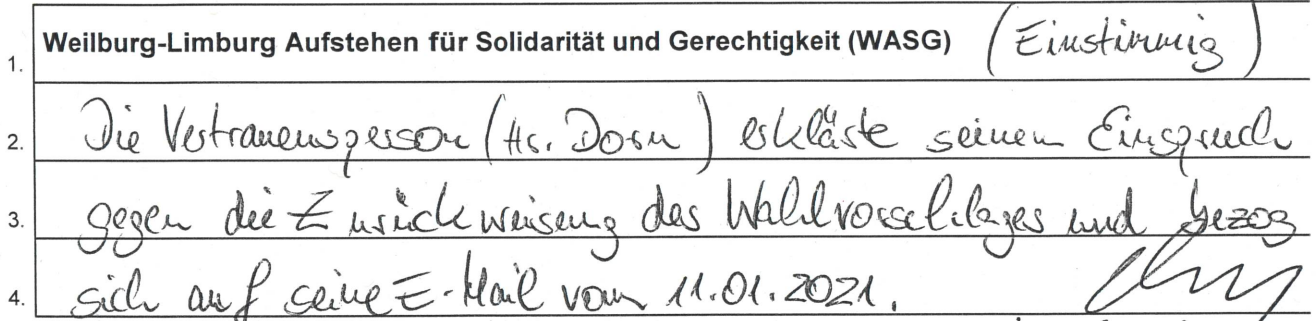 1. Weilburg-Limburg Aufstehen für Solidarität und Gerechtigkeit (WASG) (Einstimmig)
2. Die Vertrauensperson (Hr. Dorn) erklärte seinen Einspruch
3. gegen die Zurückweisung des Wahlvorschlages und bezog
4. sich auf seine E-Mail vom 11.01.2021.